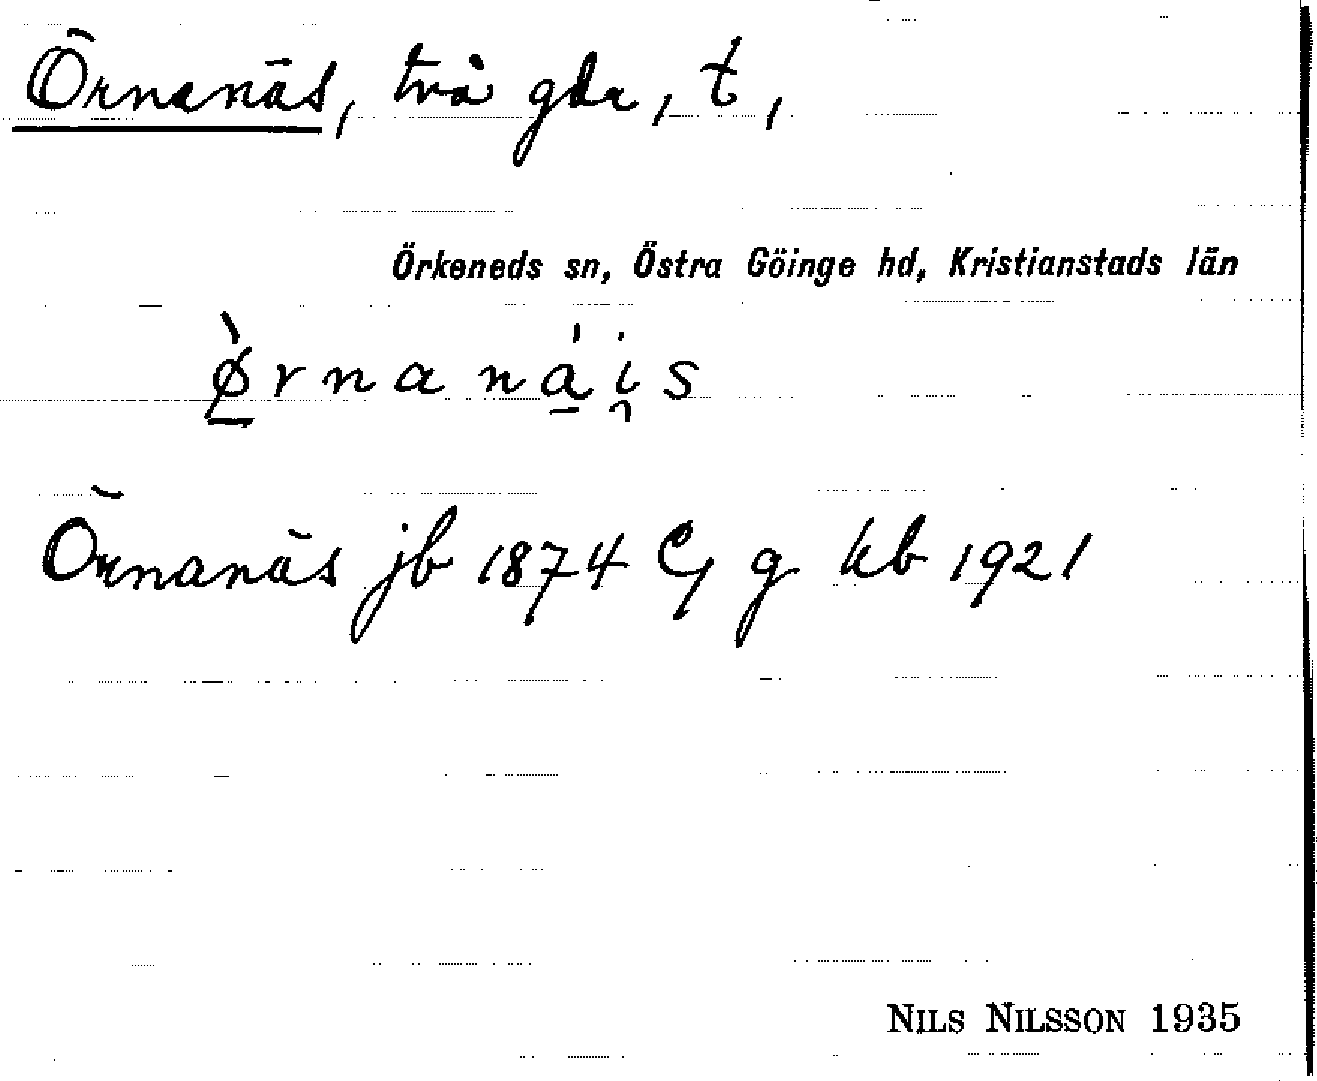 Örnanäs, två gdr, t,
Örkeneds sn, Östra Göinge hd, Kristianstads län
ø̱̀rnaná̱i̯s
Örnanäs jb 1874 C, g kb 1921
NILS NILSSON 1935